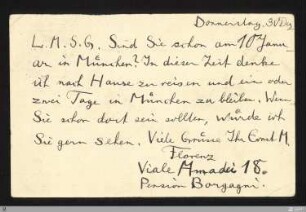 Donnerstag, 30 Dez
L. M. S. G. Sind Sie schon am 10 Janu
ar in München? In dieser Zeit denke
ich nach Hause zu reisen und ein oder
zwei Tage in München zu bleiben. Wenn
Sie schon dort sein sollten, würde ich
Sie gern sehen. Viele Grüsse Ihr Ernst M.
Florenz
Viale Amadei 18.
Pension Borgagni.